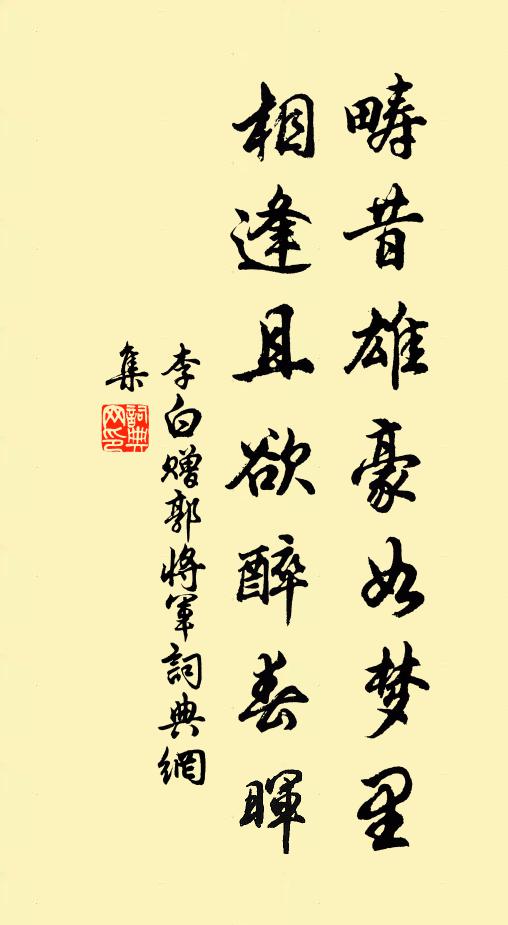 畴昔雄豪如梦里
相逢且欲醉春暉
李白赠郭将軍詞典網
集
詞典
网印